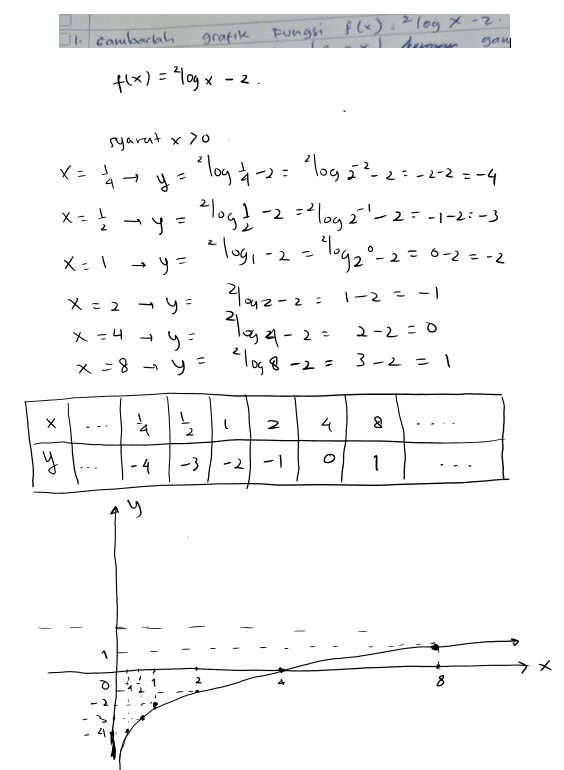 1. Gambarlah grafik Fungsi f(x) = ²log x - 2.
f(x) = ²log x - 2.
syarat x > 0.
x = 1/4 → y = ²log 1/4 - 2 = ²log 2⁻² - 2 = -2 - 2 = -4
x = 1/2 → y = ²log 1/2 - 2 = ²log 2⁻¹ - 2 = -1 - 2 = -3
x = 1 → y = ²log 1 - 2 = ²log 2⁰ - 2 = 0 - 2 = -2
x = 2 → y = ²log 2 - 2 = 1 - 2 = -1
x = 4 → y = ²log 4 - 2 = 2 - 2 = 0
x = 8 → y = ²log 8 - 2 = 3 - 2 = 1
x ... 1/4 1/2 1 2 4 8 ....
y ... -4 -3 -2 -1 0 1 ...
y
1
x
0 1/4 1/2 1 2 4 8
-2
-3
-4